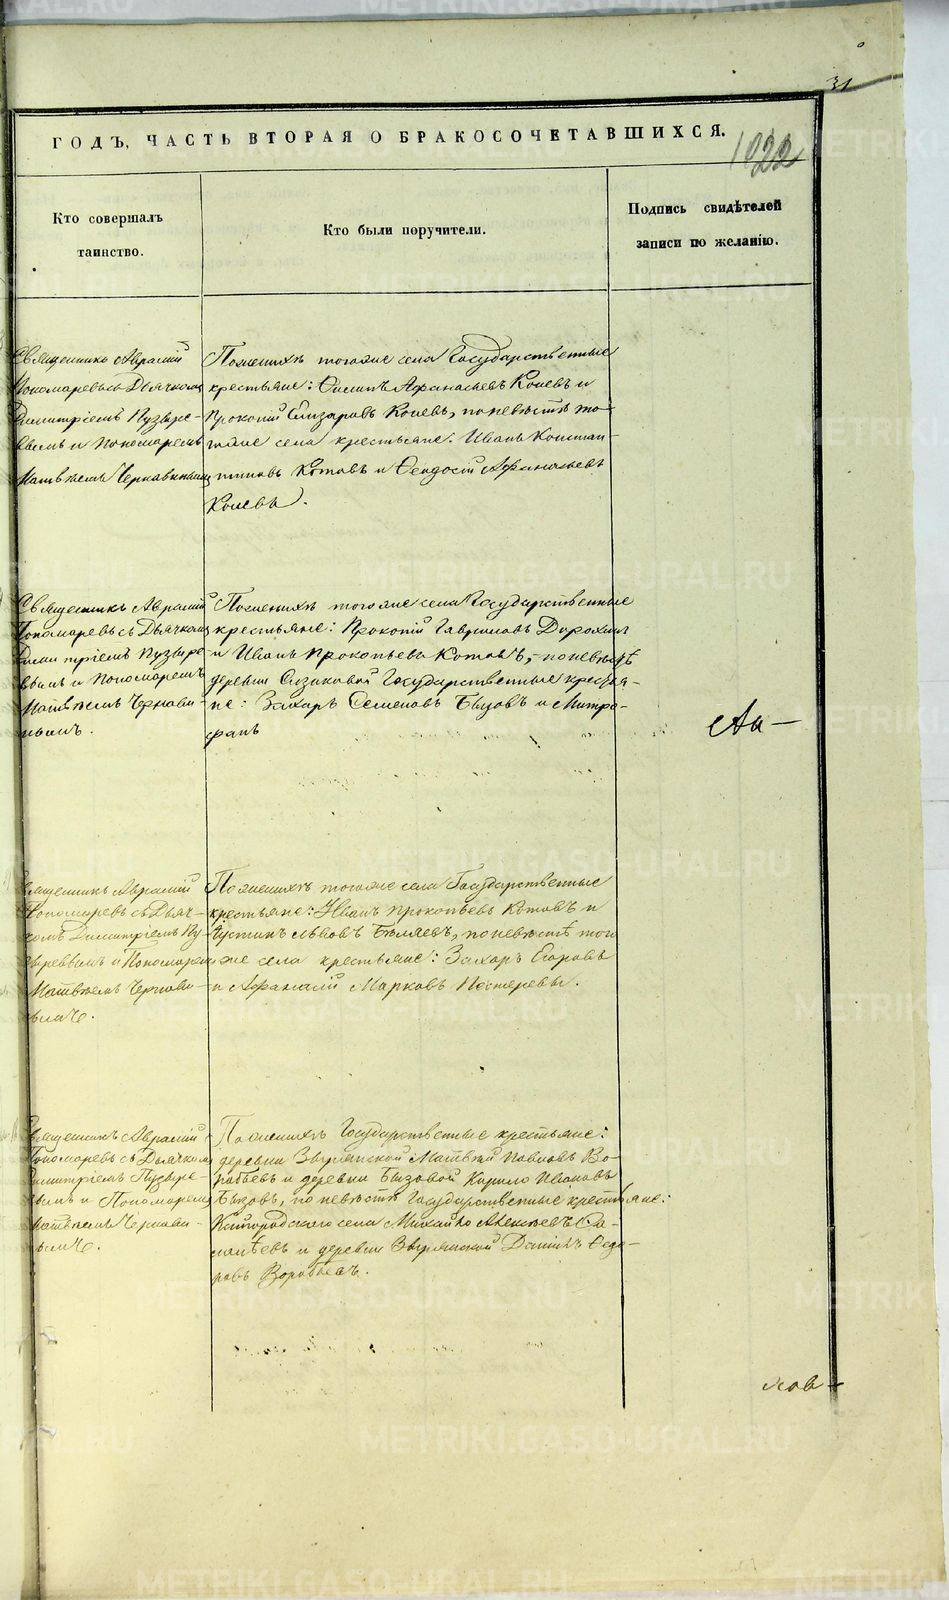 31
ГОДЪ, ЧАСТЬ ВТОРАЯ О БРАКОСОЧЕТАВШИХСЯ.
1022
Кто совершалъ
таинство.
Кто были поручители.
Подпись свидѣтелей
записи по желанію.
Священникъ Аврамій
Пономаревъ съ Дьячкомъ
Димитріемъ Пузыре-
вымъ и Пономаремъ
Матвѣемъ Чернавинымъ
По женихѣ тогоже села Государственные
крестьяне: Филипъ Афанасьевъ Коневъ и
Прокопій Елизаровъ Коневъ, по невѣстѣ то-
гоже села крестьяне: Иванъ Констан-
тиновъ Котовъ и Феодосій Афанасьевъ
Коневъ.
Священникъ Аврамій
Пономаревъ съ Дьячкомъ
Димитріемъ Пузыре-
вымъ и Пономаремъ
Матвѣемъ Чернави-
нымъ.
По женихѣ тогоже села Государственные
крестьяне: Прокопій Гавриловъ Дорохин
и Иванъ Прокопьевъ Котовъ, по невѣстѣ
деревни Государственные крестья-
не: Захаръ Семеновъ Бызовъ и Митро-
фанъ
Ап—
Священникъ Аврамій
Пономаревъ съ Дьяч-
комъ Димитріемъ Пу-
зыревымъ и Пономарем
Матвѣемъ Чернави-
нымъ.
По женихѣ тогоже села Государственные
крестьяне: Иванъ Прокопьевъ Котовъ и
Густинъ Львовъ Бѣляевъ, по невѣстѣ того
же села крестьяне: Захаръ Егоровъ
и Афанасій Марковъ Постеревы.
Священникъ Аврамій
Пономаревъ съ Дьячкомъ
Димитріемъ Пузыре-
вымъ и Пономаремъ
Матвѣемъ Чернави-
нымъ.
По женихѣ Государственные крестьяне:
деревни Звѣрянской Матвѣй Павловъ Во-
робьевъ и деревни Бызовой Кирило Ивановъ
Бызовъ, по невѣстѣ Государственные крестьяне:
села Михайло Алексѣевъ
и деревни Звѣрянской Данiилъ Федо-
ровъ Воробьевъ.
ков—
METRIKI.GASO-URAL.RU